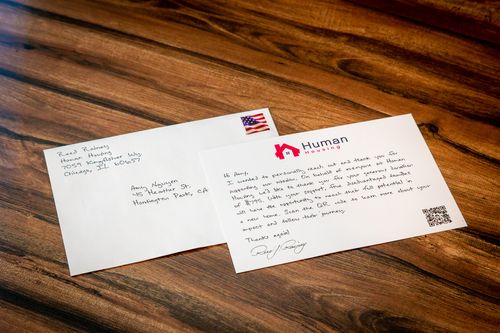 Reed Rainey
Human Housing
7059 Kingfisher Wy.
Chicago, IL 60657
Amy Nguyen
45 Heather St.
Huntington Park, CA
Human
Housing
Hi Amy,
I wanted to personally reach out and thank you for
supporting our mission. On behalf of everyone at Human
Housing, I'd like to thank you for your generous donation
of $795. With your support, five disadvantaged families
will have the opportunity to reach their full potential in
a new home. Scan the QR code to learn more about your
impact and follow their journey.
Thanks again!